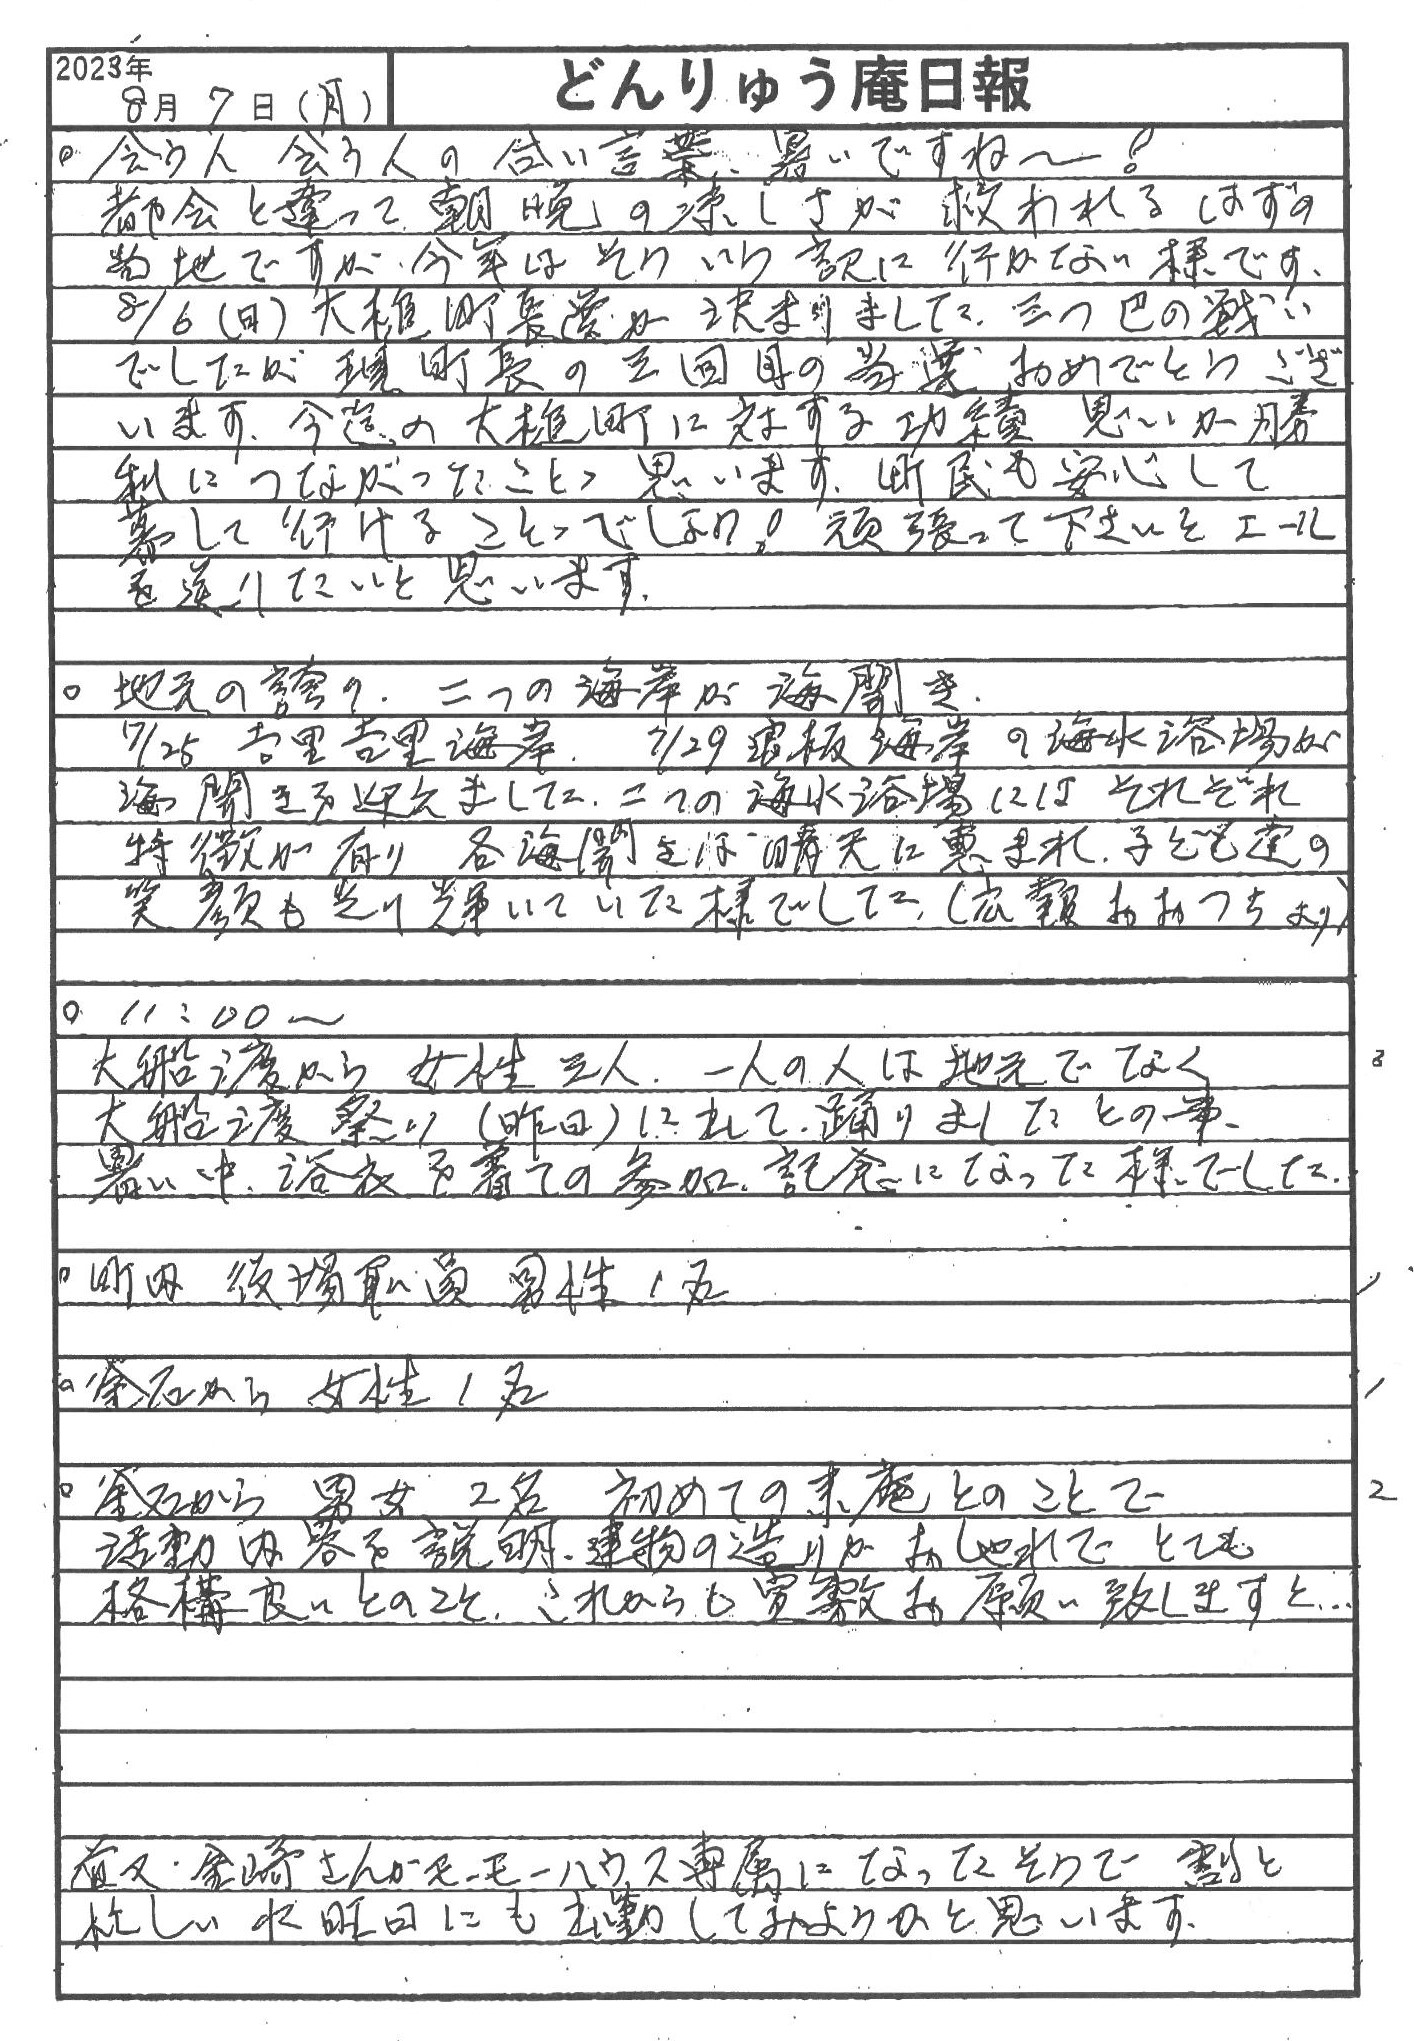 2023年
8月7日(月)
どんりゅう庵日報
○ 会う人 会う人の合い言葉、暑いですね〜!
都会と違って、朝晩の涼しさが救われるはずの
当地ですが、今年はそういう訳に行かない様です、
8/6(日)大槌町長選が決まりました、三つ巴の戦い
でしたが現町長の三回目の当選おめでとうござ
います、今迄の大槌町に対する功績 思いが勝
利につながったことと思います、町民も安心して
暮して行けることでしょう!頑張って下さいとエール
を送りたいと思います、
○ 地元の誇り、二つの海岸が海開き、
7/25 吉里吉里海岸、7/29浪板海岸の海水浴場が
海開きを迎えました、二つの海水浴場にはそれぞれ
特徴が有り 各海開きは晴天に恵まれ、子ども達の
笑顔も光り輝いていた様でした、(広報おおつちより)
○ 11:00〜
大船渡から 女性三人、一人の人は地元でなく 3
大船渡祭り(昨日)に出て、踊りましたとの事、
暑い中、浴衣を着ての参加、記念になった様でした、
○ 町内 役場職員 男性1名 1
○ 釜石から 女性1名 1
○ 釜石から 男女 2名 初めての来庵とのことで 2
活動内容を説明、建物の造りがおしゃれでとても
格構良いとのこと、これからも宜敷お願い致しますと…
さんがモーモーハウス専属になったそうで 割と
忙しい水曜日にも出勤してみようかと思います、